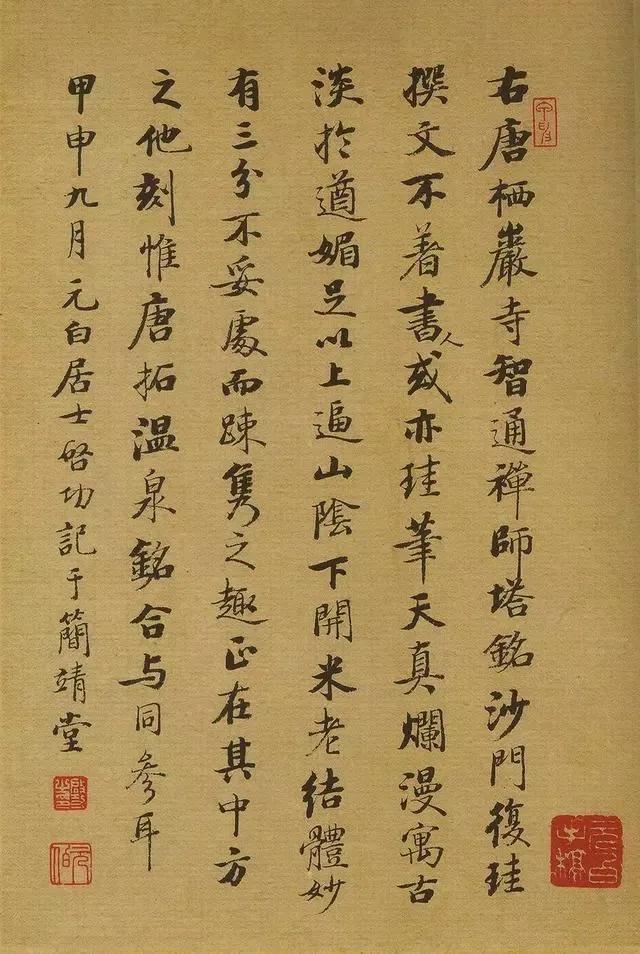 右唐栖巖寺智通禪師塔銘沙門復珪
撰文不著書人或亦珪筆天真爛漫寓古
淡於遒媚足以上逼山陰下開米老結體妙
有三分不妥處而疎隽之趣正在其中方
之他刻惟唐拓温泉銘合与同參耳
甲申九月元白居士启功記于簡靖堂